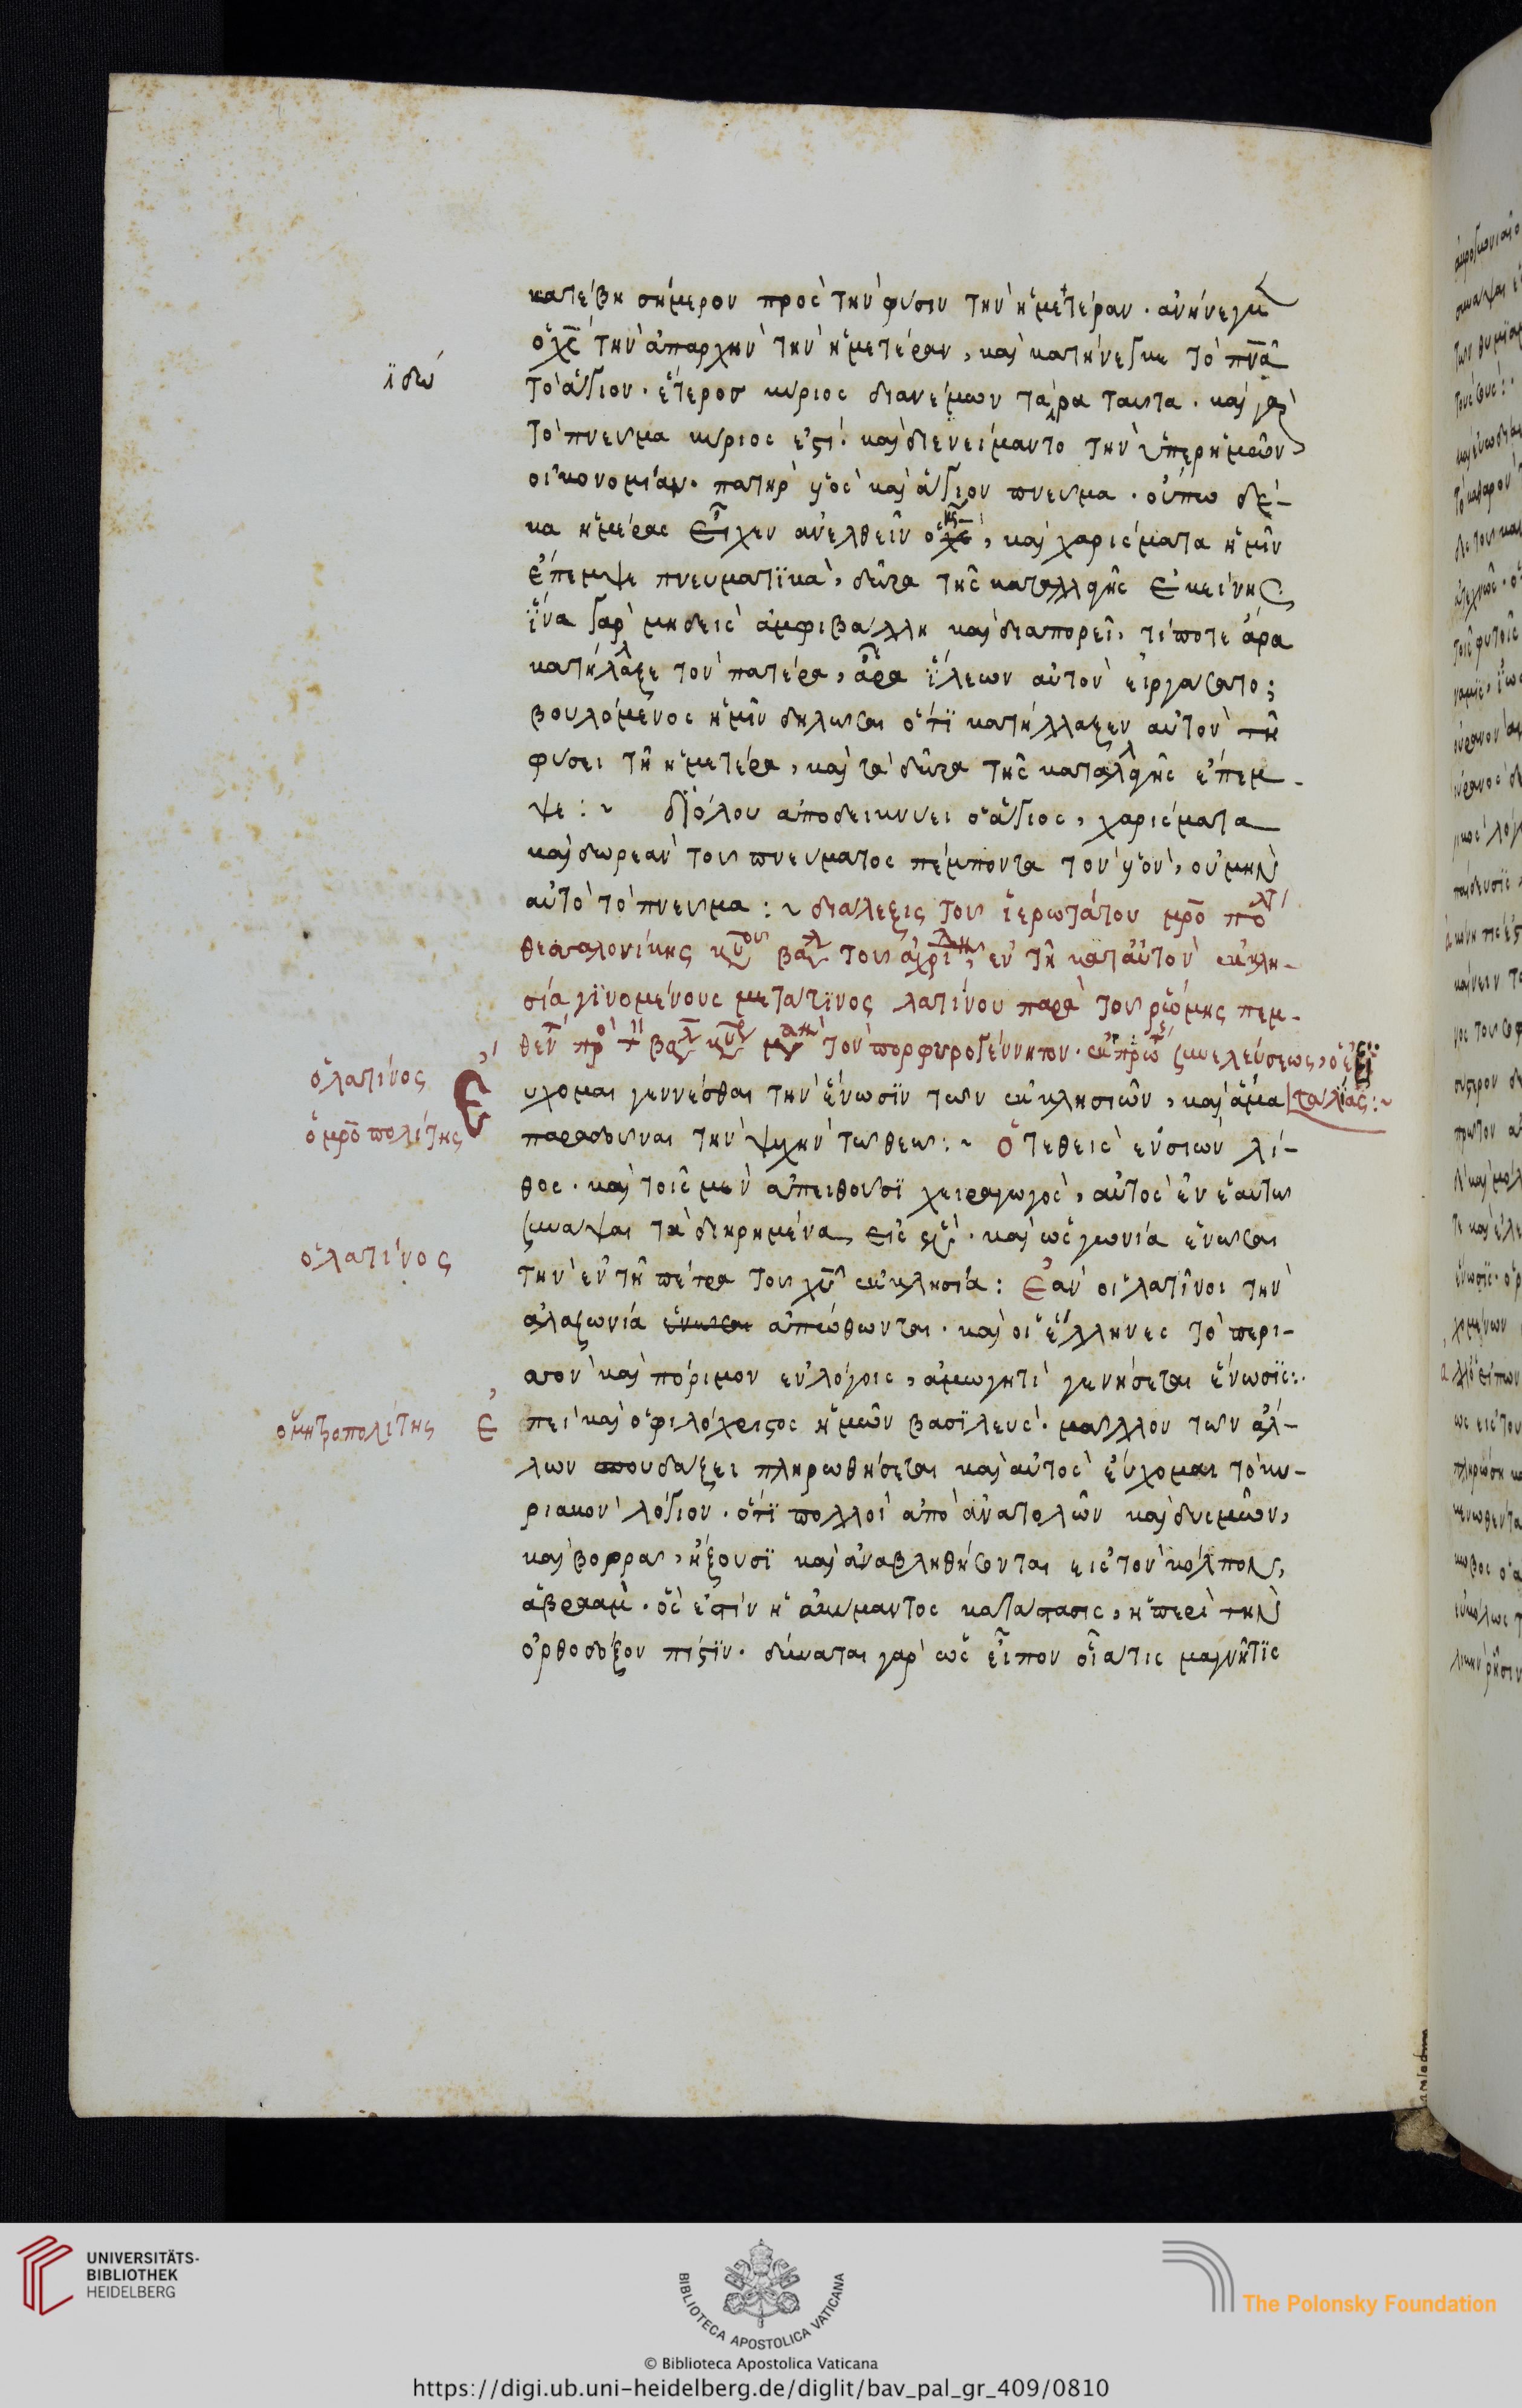 κατέβη σήμερον πρὸς τὴν φύσιν τὴν ἡμετέραν · ἀνήνεγκε
ὁ χς τὴν ἀπαρχὴν τὴν ἡμετέραν, καὶ κατήνεγκε τὸ πνα
ἰδού
τὸ ἅγιον · ἕτερος κύριος διανέμων ταῦτα · καὶ γὰρ
τὸ πνεῦμα κύριος ἐστί · καὶ διενείμαντο τὴν ὑπὲρ ἡμῶν
οἰκονομίαν · πατὴρ υἱὸς καὶ ἅγιον πνεῦμα · οὔπω δέ-
κα ἡμέρας εἶχεν ἀνελθεῖν ὁ χς, καὶ χαρίσματα ἡμῖν
ἔπεμψε πνευματϊκὰ, δῶρα τῆς καταλλαγῆς ἐκείνης
ἵ̈να γὰρ μηδεὶς ἀμφιβάλλη καὶ διαπορεῖ, τίποτε ἄρα
κατήλλαξε τὸν πατέρα, ἆρα ἵ̈λεων αὐτὸν εἰργάσατο;
βουλόμενος ἡμῖν δηλῶσαι ὅτϊ κατήλλαξεν αὐτὸν τῆ
φύσει τῆ ἡμετέρα, καὶ τὰ δῶρα τῆς καταλλαγῆς ἔπεμ-
ψε :~ διόλου ἀποδεικνύει ὁ ἅγιος, χαρίσματα
καὶ δωρεὰν τοῦ πνεύματος πέμποντα τὸν υἱὸν, οὐ μὴν
αὐτὸ τὸ πνεῦμα :~ διάλεξις τοῦ ἱερωτάτου μρο πολτ
θεσαλονίκης κυροῦ βασλ τοῦ ἀχριδην, ἐν τῆ κατ αὐτὸν ἐκκλη-
σία γϊνομένους μετά τϊνος λατίνου παρὰ τοῦ ῥώμης πεμ-
φθεντ πρὸ τ βασλ κυρ μαν τὸν πορφυρογέννητον · ἐκ πρώτ συνελεύσεως, ὁ ἐξ ϊ̈
ὁ λατίνος
Εὔχομαι γενέσθαι τὴν ἕνωσϊν τῶν ἐκκλησιῶν, καὶ ἅμα ταλίας :~
ὁ μρο πολίτης
παραδοῦναι τὴν ψυχὴν τῶ θεῶ :~ Ὁ τεθεὶς ἐν σιὼν λί-
θος · καὶ τοῖς μὲν ἀπειθοῦσϊ χειραγωγὸς, αὐτὸς ἐν ἑαυτῶ
συνάψαι τὰ διηρημένα εἰς ἓν · καὶ ὡς γωνία ἑνῶσαι
ὁ λατίνος
τὴν ἐν τῆ πέτρα τοῦ χυ ἐκκλησία : Ἐὰν οἱ λατῖνοι τὴν
ἀλαζωνία ἀπώθωνται · καὶ οἱ ἕλληνες τὸ περι-
σὸν καὶ πόριμον ἐν λόγοις, ἀμωγητὶ γενήσεται ἕνωσϊς :.
ὁ μητροπολίτης
Ἐπεὶ καὶ ὁ φιλόχριστος ἡμῶν βασϊλεὺς · μᾶλλον τῶν ἄλ-
λων σπουδάζει πληρωθήσεται καὶ αὐτὸς εὔχομαι τὸ κυ-
ριακὸν λόγιον · ὅτϊ πολλοὶ ἀπὸ ἀνατολῶν καὶ δυσμῶν,
καὶ βορρᾶ, ἥξουσϊ καὶ ἀναβληθήσονται εἰς τὸν κόλπον,
ἀβραὰμ · ὅς ἐστὶν ἡ ἀκύμαντος κατάστασις, ἡ περὶ τὴν
ὀρθοδόξον πίστϊν · δύναται γὰρ ὡς εἶπον οἷα τις μαγνῆτϊς
UNIVERSITÄTS-
BIBLIOTHEK
HEIDELBERG
BIBLIOTECA APOSTOLICA VATICANA
The Polonsky Foundation
© Biblioteca Apostolica Vaticana
https://digi.ub.uni-heidelberg.de/diglit/bav_pal_gr_409/0810